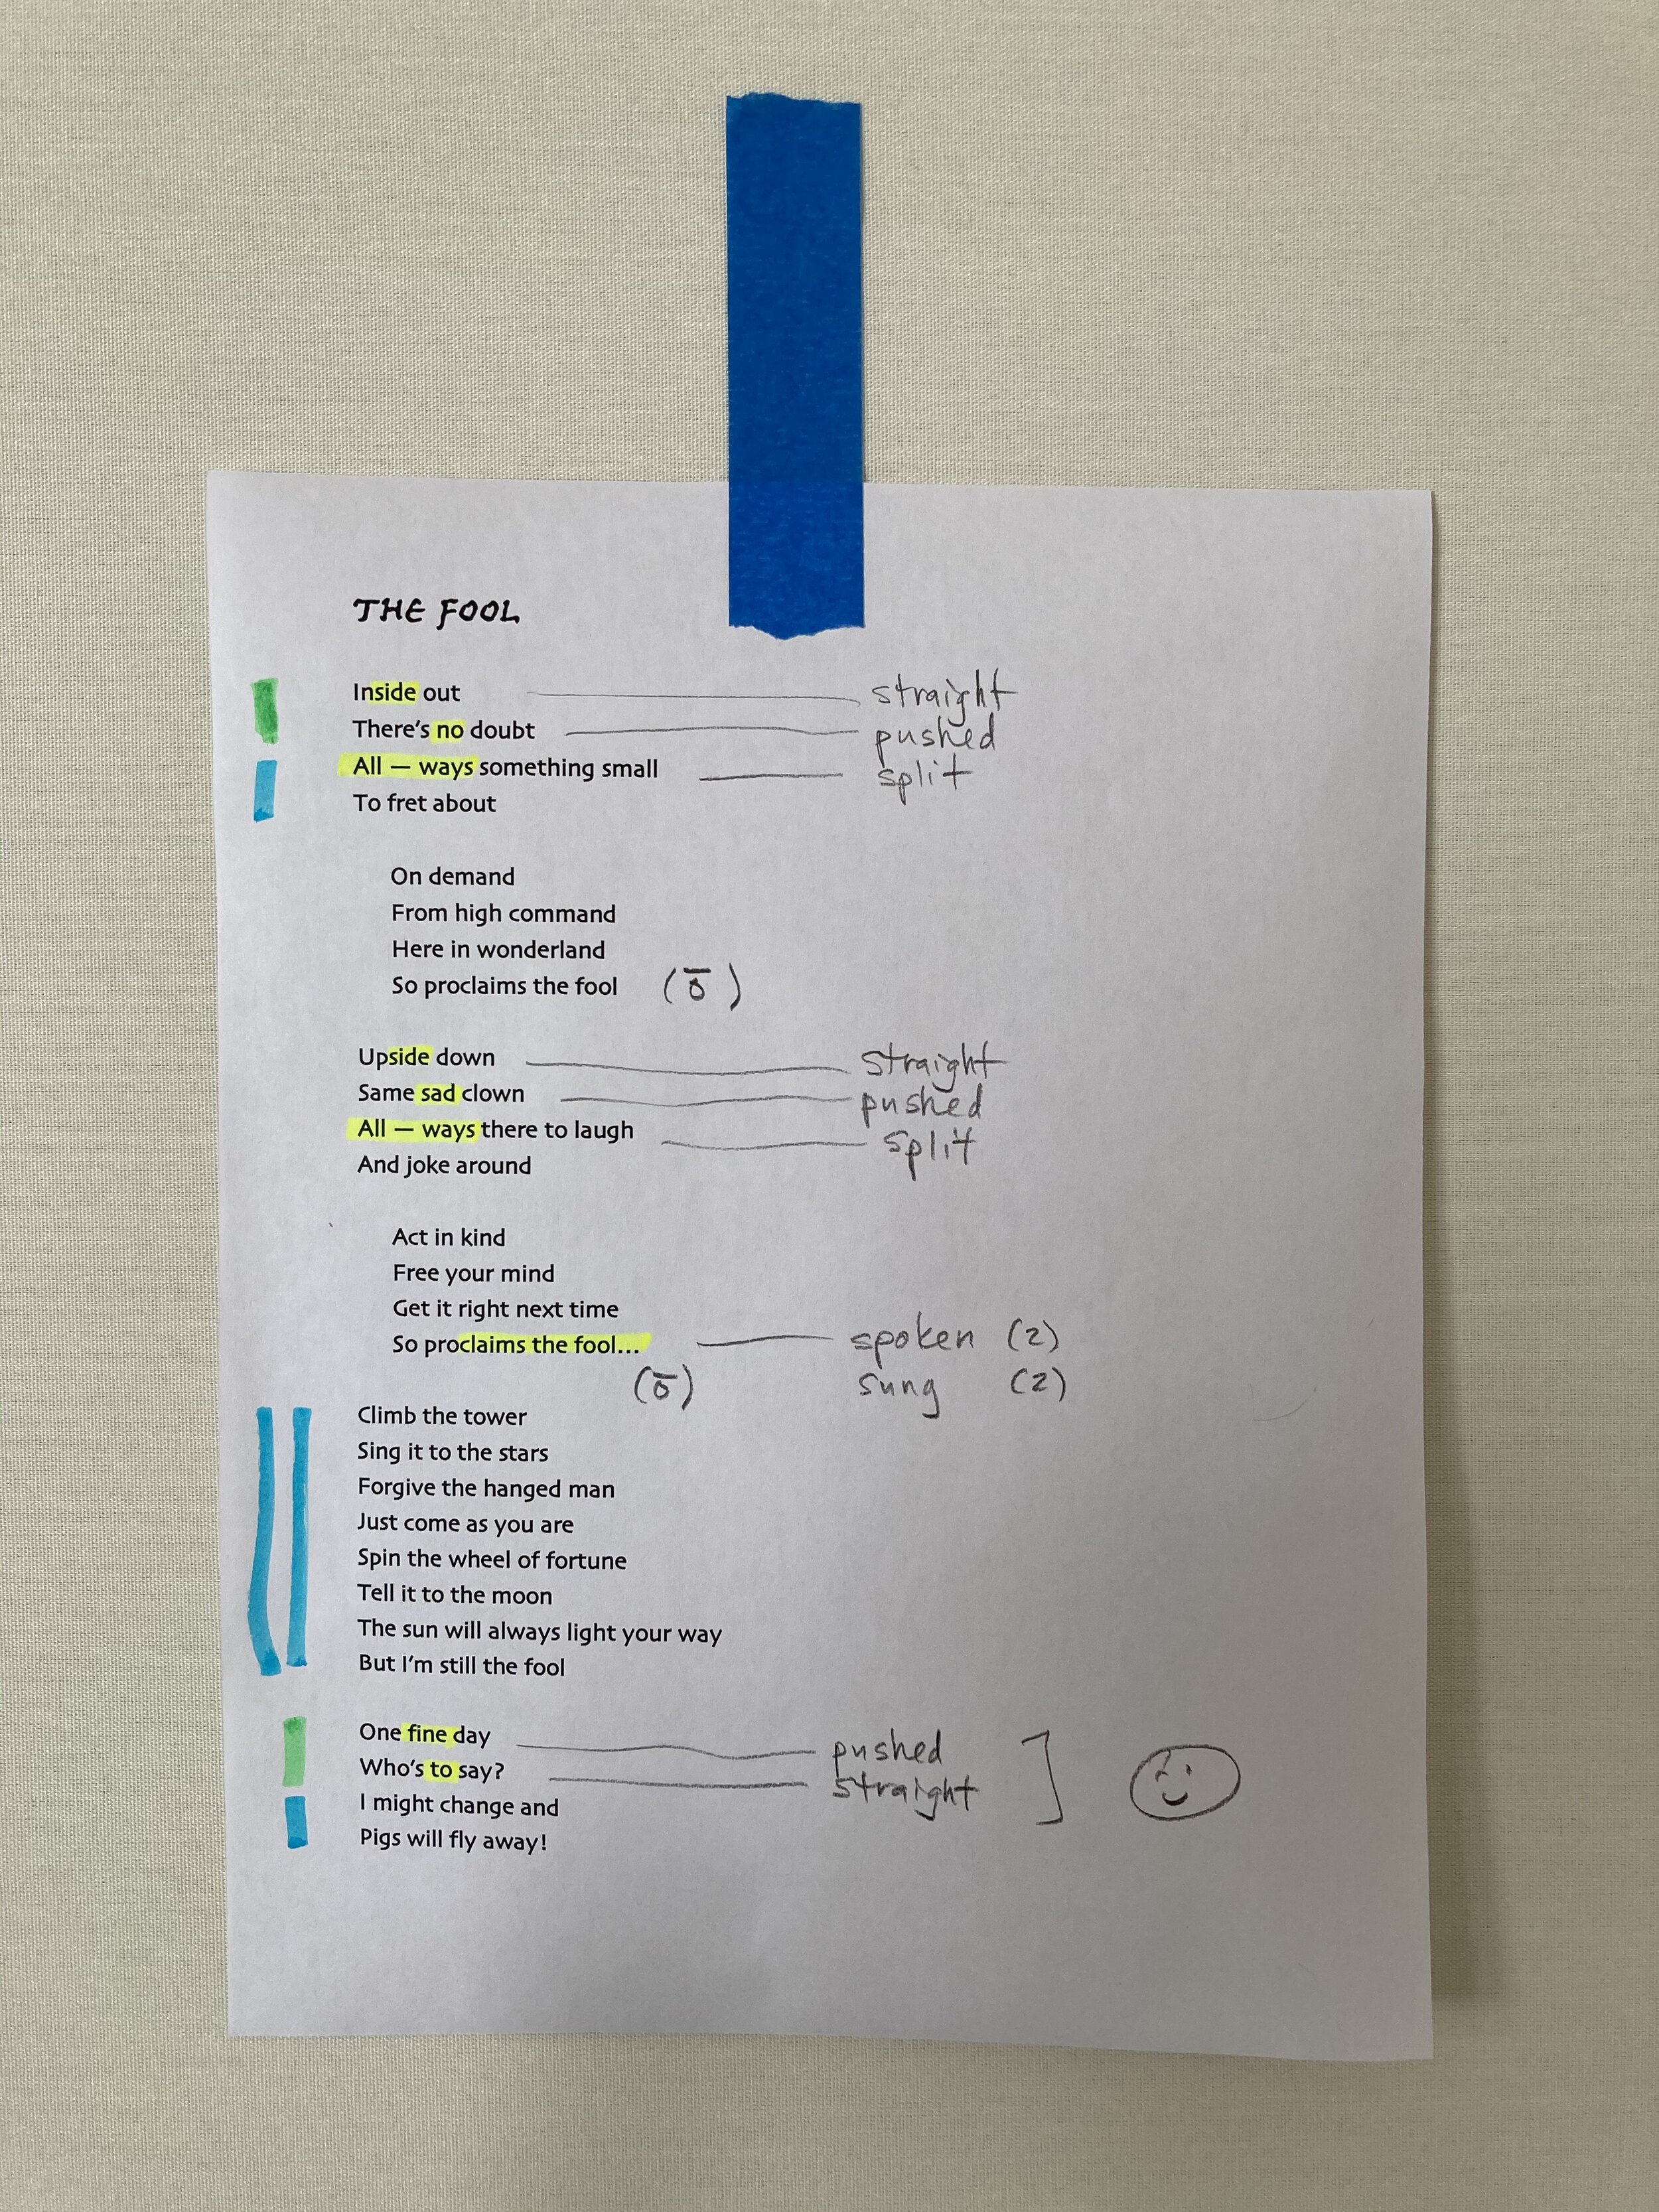 THE FOOL
Inside out straight
There's no doubt pushed
All — ways something small split
To fret about
On demand
From high command
Here in wonderland
So proclaims the fool (ō)
Upside down straight
Same sad clown pushed
All — ways there to laugh split
And joke around
Act in kind
Free your mind
Get it right next time
So proclaims the fool... spoken (2)
(ō) sung (2)
Climb the tower
Sing it to the stars
Forgive the hanged man
Just come as you are
Spin the wheel of fortune
Tell it to the moon
The sun will always light your way
But I'm still the fool
One fine day pushed
Who's to say? straight
I might change and
Pigs will fly away!